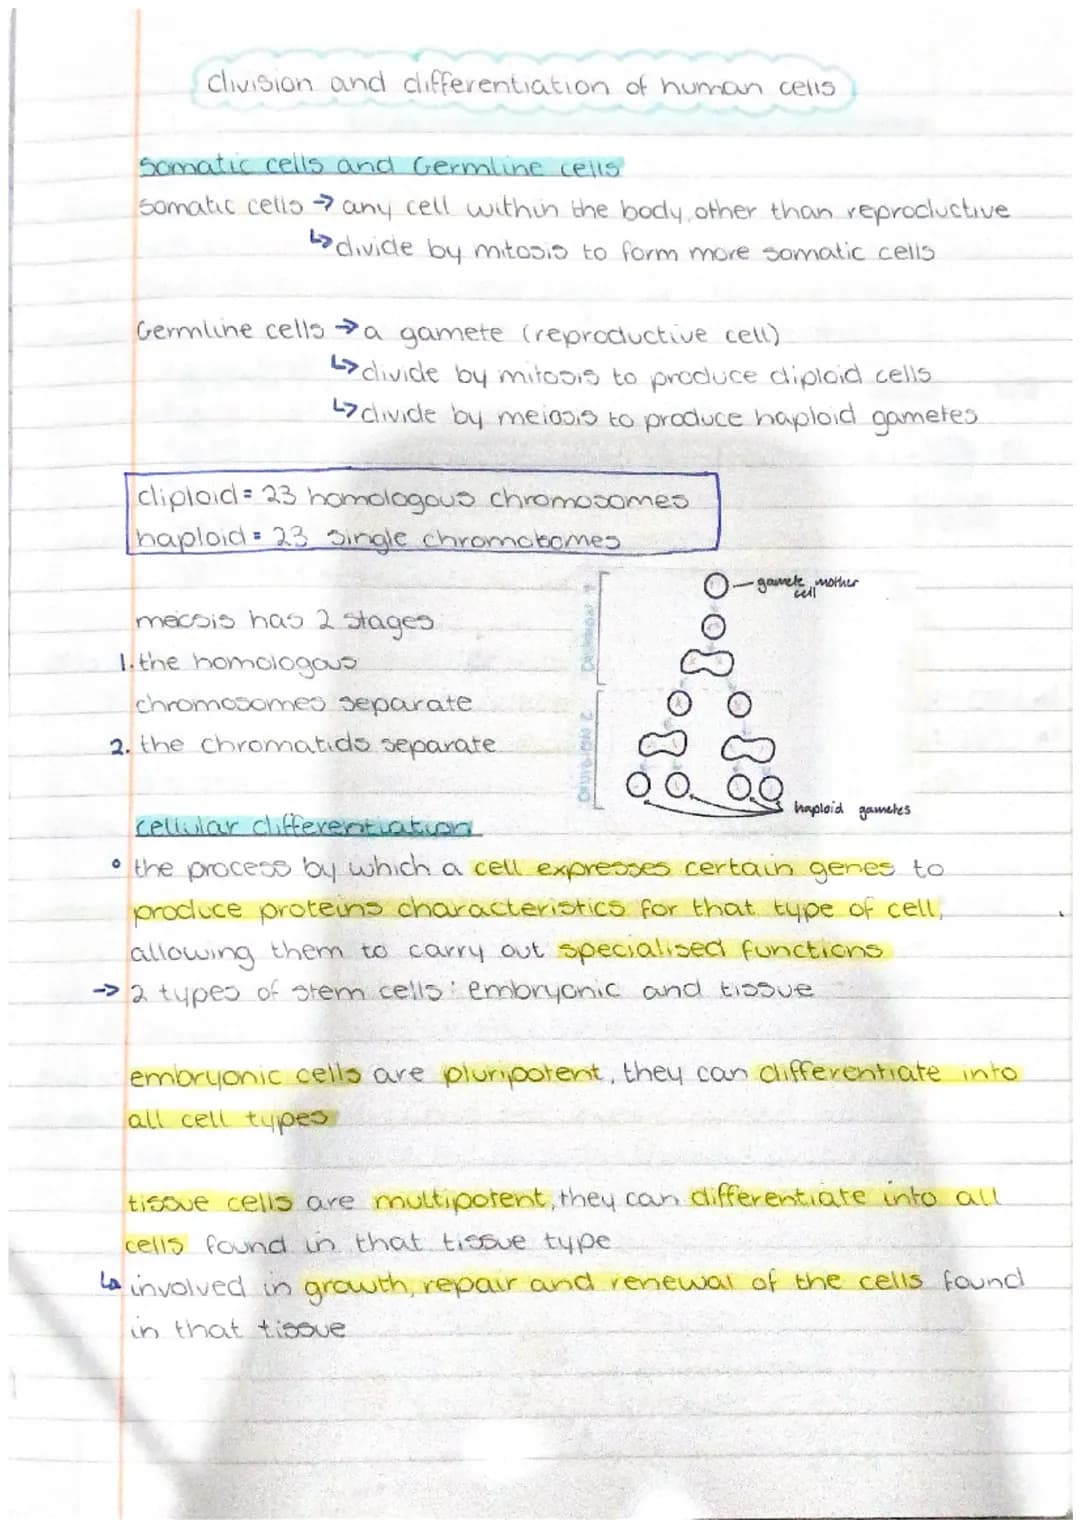 division and differentiation of human cells
somatic cells and Germline cells
somatic cells → any cell within the body, other than reproductive
↳ divide by mitosis to form more somatic cells
Germline cells → a gamete (reproductive cell)
↳ divide by mitosis to produce diploid cells
↳ divide by meiosis to produce haploid gametes
diploid = 23 homologous chromosomes
haploid = 23 single chromosomes
gamete mother
cell
meiosis has 2 stages
1. the homologous
chromosomes separate
2. the chromatids separate
DIVISION 1
DIVISION 2
haploid gametes
cellular differentiation
• the process by which a cell expresses certain genes to
produce proteins characteristics for that type of cell,
allowing them to carry out specialised functions
→ 2 types of stem cells: embryonic and tissue
embryonic cells are pluripotent, they can differentiate into
all cell types
tissue cells are multipotent, they can differentiate into all
cells found in that tissue type
↳ involved in growth, repair and renewal of the cells found
in that tissue